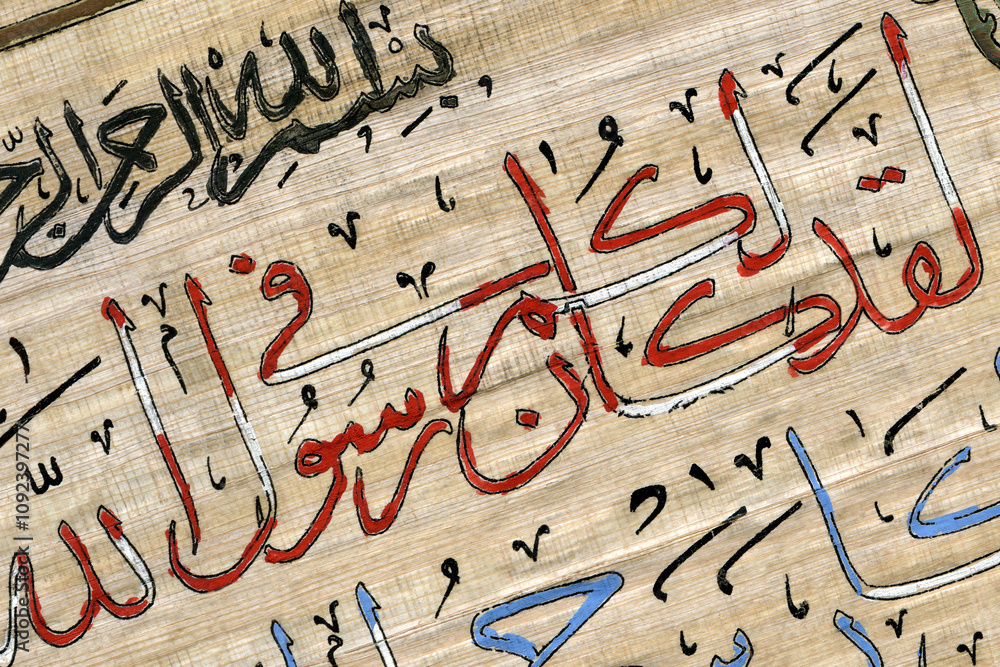 بسم الله الرحمن
لقد كان لكم في رسول الله
Adobe Stock | #1092397277